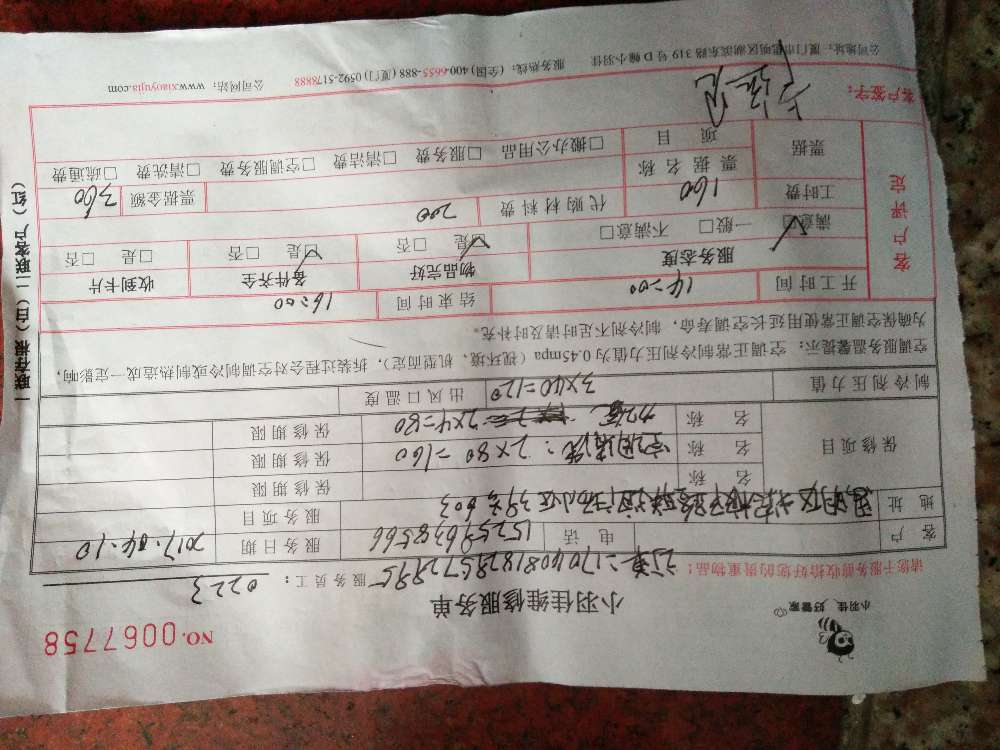 小羽佳·好管家
NO.0067758
小羽佳维修服务单
请您于服务前收拾好您的贵重物品!
服务员工: 0223
客户 电话 15259638566 服务日期 2017.04.10
地址 服务项目
保修项目 名称 保修期限
名称 空调清洗:2×80=160 保修期限
名称 2×4=80 保修期限
制冷剂压力值 3×40=120 出风口温度
空调服务温馨提示:空调正常制冷剂压力值为0.45mpa(视环境、机型而定),拆装过程会对空调制冷或制热造成一定影响,
为确保空调正常使用延长空调寿命,制冷剂不足时请及时补充。
客户评定
开工时间 14:00 结束时间 16:00
服务态度 物品完好 备件齐全 收到卡片
满意 一般 不满意 是 否 是 否 是 否
工时费 160 代购材料费 200 票据金额 360
票据 票据名称 项目
搬办公用品 服务费 清洁费 空调服务费 清洗费 疏通费
客户签字:
公司地址:厦门市思明区湖滨东路319号D幢小羽佳 服务热线:(全国)400-6655-888 (厦门)0592-5178888 公司网站:www.xiaoyujia.com
一联存根(白)二联客户(红)